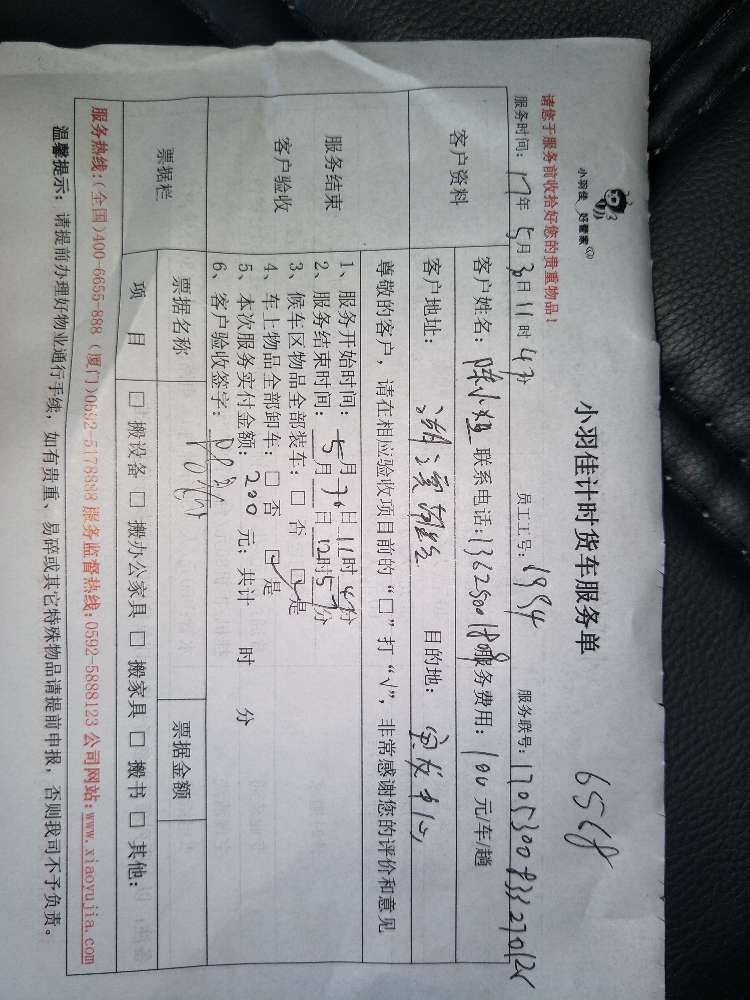 小羽佳 好管家
小羽佳计时货车服务单
6568
请您于服务前收拾好您的贵重物品!
服务时间: 17年 5月 30日 11时 47分 员工工号: 1994 服务联号: 170530083327012
客户资料
客户姓名: 陈小 联系电话: 服务费用: 100 元/车/趟
客户地址: 目的地: 中心
尊敬的客户,请在相应验收项目前的“□”打“√”,非常感谢您的评价和意见
服务结束
客户验收
1、服务开始时间: 5月 30日 11时 47分
2、服务结束时间: 月 日 12时 57分
3、候车区物品全部装车: □ 否 ☑ 是
4、车上物品全部卸车: □ 否 ☑ 是
5、本次服务实付金额: 200 元; 共计 时 分
6、客户验收签字:
票据栏
票据名称 票据金额
项 目 □ 搬设备 □ 搬办公家具 □ 搬家具 □ 搬书 □ 其他:
服务热线:(全国)400-6655-888 (厦门)0592-5178888 服务监督热线:0592-5888123 公司网站:www.xiaoyujia.com
温馨提示: 请提前办理好物业通行手续,如有贵重、易碎或其它特殊物品请提前申报,否则我司不予负责。